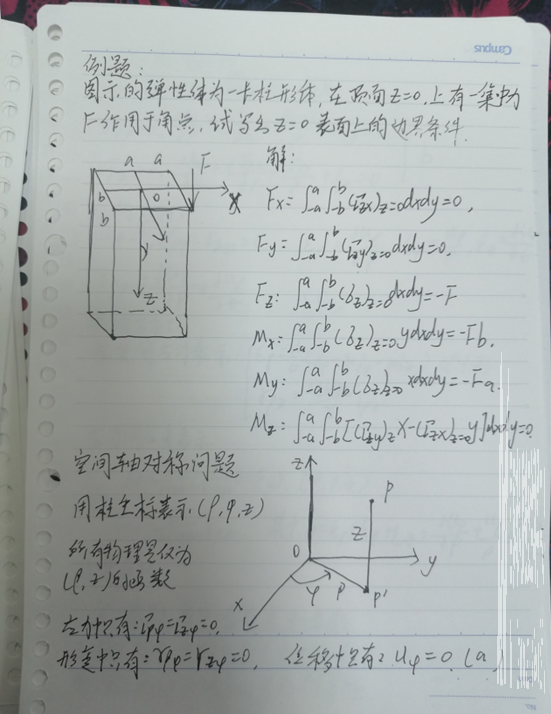 Campus
例题:
图示的弹性体为一长柱形体,在顶面z=0.上有一集中力
F作用于角点,试写出z=0表面上的边界条件.
解:
a a F
b 0 X
b
Z
Fx=∫-a^a∫-b^b(τzx)z=0dxdy=0,
Fy=∫-a^a∫-b^b(τzy)z=0dxdy=0.
Fz:∫-a^a∫-b^b(σz)z=0dxdy=-F
Mx:∫-a^a∫-b^b(σz)z=0ydxdy=-Fb.
My:∫-a^a∫-b^b(σz)z=0xdxdy=-Fa.
Mz:∫-a^a∫-b^b[(τzy)z x-(τzx)z=0y]dxdy=0
空间轴对称问题
用柱坐标表示.(ρ,φ,z)
所有物理量仅为
(ρ,z)的函数
z
P
z
0 y
φ ρ P'
x
应力中只有:τρφ=τzφ=0.
形变中只有:γρφ=γzφ=0, 位移中只有:uφ=0.(a)
No.